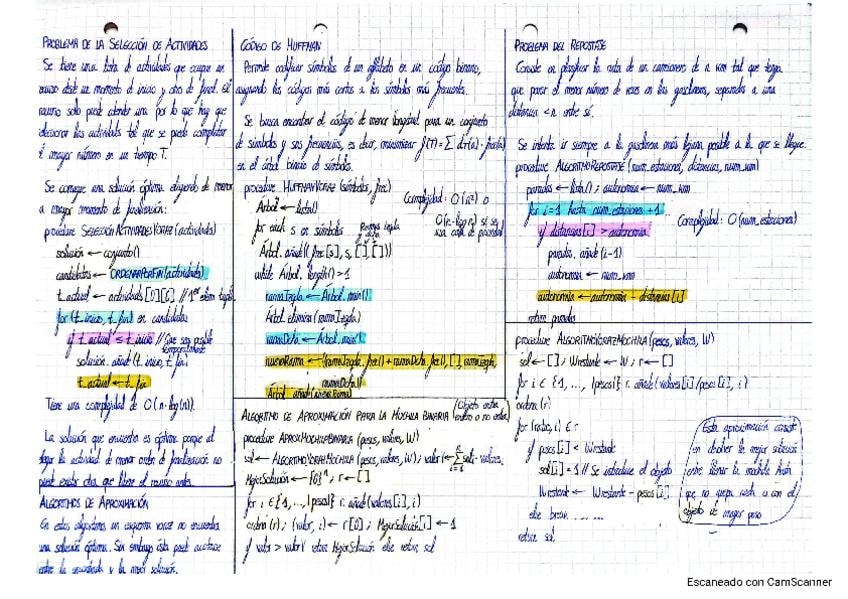 PROBLEMA DE LA SELECCIÓN DE ACTIVIDADES
Se tiene una lista de actividades que ocupan un
recurso desde un momento de inicio y otro de final. El
recurso solo puede atender una por lo que hay que
seleccionar las actividades tal que se pueda completar
el mayor número en un tiempo T.
Se consigue una solución óptima eligiendo de menor
a mayor momento de finalización:
procedure SELECCIÓNACTIVIDADESVORAZ (actividades)
solución ← conjunto()
candidatos ← ORDENARPORFIN(actividades)
t_actual ← actividades[0][0] // 1er elem tupla
for (t_inicio, t_fin) en candidatos
if t_actual ≤ t_inicio // Sea posible temporalmente
solución.añade(t_inicio, t_fin)
t_actual ← t_fin
Tiene una complejidad de O(n·log(n)).
La solución que encuentra es óptima porque al
elegir la actividad de menor orden de finalización no
puede existir otra que libere el recurso antes.
ALGORITMOS DE APROXIMACIÓN
En estos algoritmos un esquema voraz no encuentra
una solución óptima. Sin embargo ésta puede
entre la encontrada y la mejor solución.
CÓDIGO DE HUFFMAN
Permite codificar símbolos de un alfabeto en un código binario,
asignando los códigos más cortos a los símbolos más frecuentes.
Se busca encontrar el código de menor longitud para un conjunto
de símbolos y sus frecuencias, es decir, minimizar f(T)=∑ dt(a)·frec(a)
en el árbol binario de símbolos.
procedure HUFFMANVORAZ (símbolos, frec)
Complejidad: O(n²) o
O(n·log n) si se usa cola de prioridad
Árbol ← lista()
for each s en símbolos
Ramas izqda y dcha
Árbol.añade((frec[s], s, [], []))
while Árbol.length() > 1
ramaIzqda ← Árbol.min()
Árbol.elimina(ramaIzqda)
ramaDcha ← Árbol.min()
nuevaRama ← (ramaIzqda.frec() + ramaDcha.frec(), [], ramaIzqda,
ramaDcha)
Árbol.añade(nuevaRama)
ALGORITMO DE APROXIMACIÓN PARA LA MOCHILA BINARIA (Objeto entra entero o no entra)
procedure APROXMOCHILABINARIA (pesos, valores, W)
sol ← ALGORITMOVORAZMOCHILA (pesos, valores, W); valor ← ∑ solᵢ·valoresᵢ
MejorSolución ← {0}ⁿ; r ← []
for i ∈ {1, ..., |pesos|} r.añade(valores[i], i)
ordena(r); (valor, i) ← r[0]; MejorSolución[i] ← 1
if valor > valor' return MejorSolución else return sol
PROBLEMA DEL REPOSTAJE
Consiste en planificar la ruta de un camionero de n km tal que tenga
que parar el menor número de veces en las gasolineras, separadas a una
distancia < n entre sí.
Se intenta ir siempre a la gasolinera más lejana posible a la que se llegue.
procedure ALGORITMOREPOSTAJE (num_estaciones, distancias, num_km)
paradas ← lista(); autonomía ← num_km
for i=1 hasta num_estaciones + 1
Complejidad: O(num_estaciones)
if distancias[i] > autonomía
paradas.añade(i-1)
autonomía ← num_km
autonomía ← autonomía - distancias[i]
return paradas
procedure ALGORITMOVORAZMOCHILA (pesos, valores, W)
sol ← []; Wrestante ← W; r ← []
for i ∈ {1, ..., |pesos|} r.añade(valores[i]/pesos[i], i)
ordena(r)
for (ratio, i) ∈ r
if pesos[i] < Wrestante
sol[i] = 1 // Se introduce el objeto
Wrestante ← Wrestante - pesos[i]
else break
return sol
Esta aproximación consiste
en devolver la mejor solución
entre llenar la mochila hasta
que no quepa nada o con el
objeto de mayor peso
Escaneado con CamScanner